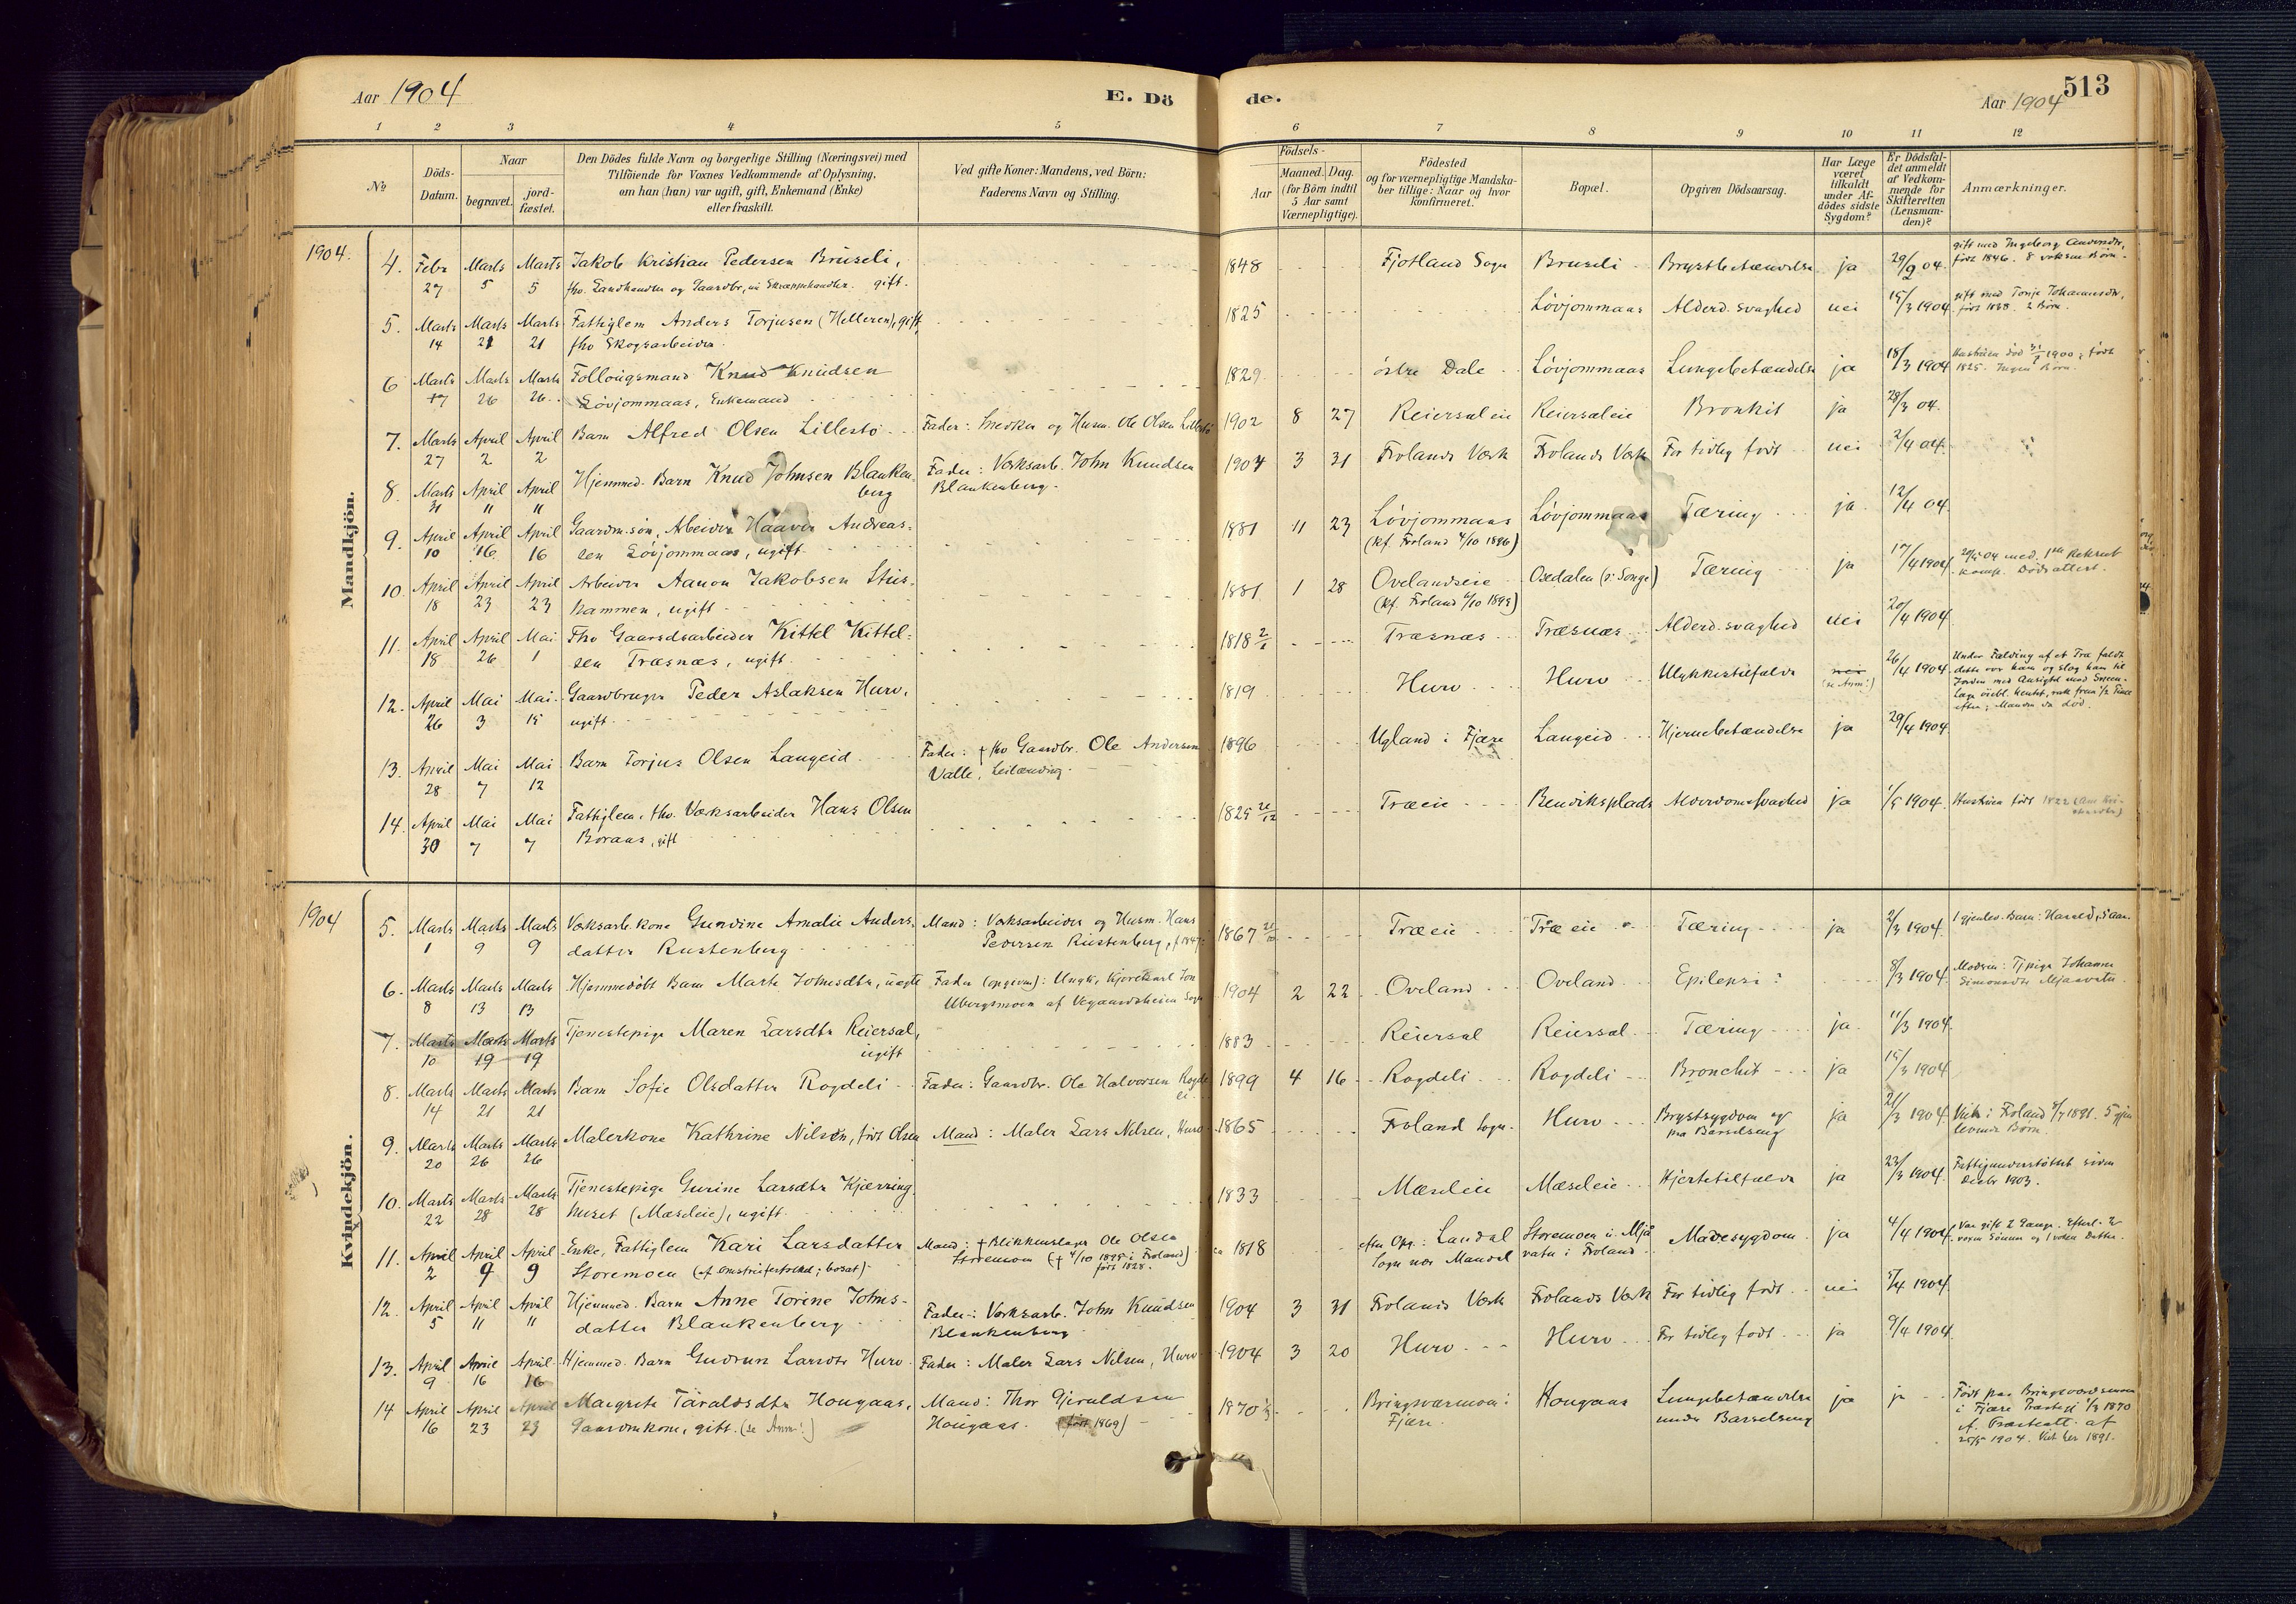 Aar 1904
E. Dö
de.
Aar 1904
513
1 2 3 4 5 6 7 8 9 10 11 12
No
Döds-
Datum.
Naar
begravet.
jord-
fæstet.
Den Dödes fulde Navn og borgerlige Stilling (Næringsvei) med
Tilföiende for Voxnes Vedkommende af Oplysning,
om han (hun) var ugift, gift, Enkemand (Enke)
eller fraskilt.
Ved gifte Koner: Mandens, ved Börn:
Faderens Navn og Stilling.
Födsels-
Aar
Maaned. Dag.
(for Börn indtil
5 Aar samt
Værnepligtige).
Födested
og for værnepligtige Mandska-
ber tillige: Naar og hvor
konfirmeret.
Bopæl.
Opgiven Dödsaarsag.
Har Læge
været
tilkaldt
under Af-
dödes sidste
Sygdom?
Er Dödsfal-
det anmeldt
af Vedkom-
mende for
Skifteretten
(Lensman-
den)?
Anmærkninger.
Mandkjön.
1904.
4. Febr Marts Marts Jakob Kristian Pedersen Bruseli, 1848 Fjotland Sogn Bruseli Brystbetændelse ja 29/2 04. gift med Ingeborg Andersdtr,
27 5 5 fhv. Landhandler og Gaardbr, gift. født 1846. 8 voksne Børn.
5. Marts Marts Marts Fattiglem Anders Torjusen (Helleren), gift, 1825 Løvjommaas Alderd. svaghed nei 15/3 1904 gift med Tonje Johannesdtr,
14 21 21 fhv Skogsarbeider. 2 Børn.
6 Marts Marts Marts Follougsmand Knud Knudsen 1829 østre Dale Løvjommaas Lungebetændelse ja 18/3 1904 Hustruen død 1900, født
17 26 26 Løvjommaas, Enkemand 1825. Ingen Børn.
7. Marts April April Barn Alfred Olsen Lillestø Fader: Snedker og Husm. Ole Olsen Lillestø 1902 8 27 Reiersøl eie Reiersøleie Bronkit ja 28/3 04.
27 2 2
8. Marts April April Hjemmed. Barn Knud Johnsen Blanken- Fader: Værksarb. John Knudsen 1904 3 31 Frolands Værk Frolands Værk For tidlig født nei 2/4 04.
31 11 11 berg Blankenberg.
9. April April April Gaardm.søn, Arbeider Haaver Andreas- 1881 11 23 Løvjommaas Løvjommaas Tæring ja 12/4 04
10 16 16 sen Løvjommaas, ugift (kf. Froland 4/10 1896)
10. April April April Arbeider Aanon Jakobsen Stus- 1881 1 28 Ovelandseie Osedalen (v: Songe) Tæring ja 17/4 1904
18 23 23 kammen, ugift (kf. Froland 6/10 1895) Dødsattest.
11. April April Mai Fhv Gaardsarbeider Kittel Kittel- 1818 Træsnæs Træsnæs Alderd. svaghed nei 20/4 1904
18 26 1 sen Træsnæs, ugift.
12. April Mai Mai Gaardbruger Peder Aslaksen Hurv, 1819 Hurv Hurv Ulykkestilfælde nei (se Anm:) 26/4 1904 Under Fælding af et Træ faldt
26 3 15 ugift dette over ham og slog ham til
Jorden med Ansigtet mod Sneen.
Læge hentet, fremk 1/2 Time
efter; Manden da død.
13. April Mai Mai Barn Torjus Olsen Langeid Fader: † fhv Gaardbr. Ole Andersen 1896 Ugland i Fjære Langeid Hjernebetændelse ja 29/4 1904
28 7 12 Valle, Leilænding
14. April Mai Mai Fattiglem, fhv. Værksarbeider Hans Olsen 1825 Træeie Bendiksplads Alderdomssvaghed ja 1/5 1904 Hustruen født 1822
30 7 7 Boraas, gift
Kvindekjön.
1904
5. Marts Marts Marts Værksarb. kone Gundine Amalie Anders- Mand: Værksarbeider og Husm. Hans 1867 Træeie Træeie Tæring ja 2/3 1904 1 gjenlev. Barn: Harald, 5 Aar.
1 9 9 datter Rustenberg Pedersen Rustenberg, f 1847
6. Marts Marts Marts Hjemmedøbt Barn Marte Johnsdtr, uægte Fader (opgiven): Ungk. Kjørekarl Jon 1904 2 22 Oveland Oveland Epilepsi? 8/3 1904 Moderen: Tjpige Johanne
8 13 13 Ubergsmoen af Vegaardsheien Sogn Simonsdtr Mjaavatn
7. Marts Marts Marts Tjenestepige Maren Larsdtr Reiersøl, 1883 Reiersøl Reiersøl Tæring ja 11/3 1904.
10 19 19 ugift
8. Marts Marts Marts Barn Sofie Olsdatter Rogdeli Fader: Gaardbr. Ole Halvorsen Rogde- 1899 4 16 Rogdeli Rogdeli Bronchit ja 15/3 1904
14 21 21 li
9. Marts Marts Marts Malerkone Kathrine Nilsen, født Olsen Mand: Maler Lars Nilsen, Hurv 1865 Froland Sogn Hurv Brystsygdom og ja 21/3 1904 Viet i Froland 1891. 5 gjen-
20 26 26 paa Barselseng levende Børn.
10. Marts Marts Marts Tjenestepige Gurine Larsdtr Kjærring- 1833 Mæseleie Mæseleie Hjertetilfælde ja 23/3 1904 Fattigunderstøttet siden
22 28 28 huset (Mæseleie), ugift. Decbr 1903.
11. April April April Enke, Fattiglem Kari Larsdatter Mand: † Blikkenslager Ole Olsen ca 1818 efter Opg: Landal Storemoen u. Mjaa- Mavesygdom ja 4/4 1904 Var gift 2 Gange. Efterl. 2
2 9 9 Storemoen (af Omstreiferfolket; bosat) Storemoen († 4/10 1895 i Froland) født 1828. Sogn ved Mandal vatn i Froland voxne Sønner og 1 voksen Datter.
12. April April April Hjemmed. Barn Anne Torine Johns- Fader: Værksarb. John Knudsen 1904 3 31 Frolands Værk Frolands Værk For tidlig født nei 5/4 1904.
5 11 11 datter Blankenberg Blankenberg
13. April April April Hjemmed. Barn Gudrun Larsdtr Hurv Fader: Maler Lars Nilsen, Hurv 1904 3 20 Hurv Hurv For tidlig født ja 9/4 1904
9 16 16
14 April April April Margrete Taraldsdtr Hougaas, Mand: Thor Gjeruldsen 1870 Bringsværmoen i Hougaas Lungebetændelse ja ja Født paa Bringsværdsmoen
16 23 23 Gaardmkone, gift. (se Anm:) Hougaas. (født 1869) Fjære. under Barselseng i Fjære Præstegj 1/3 1870
cf. Præsteatt. af
25/5 1904. Viet her 1891.